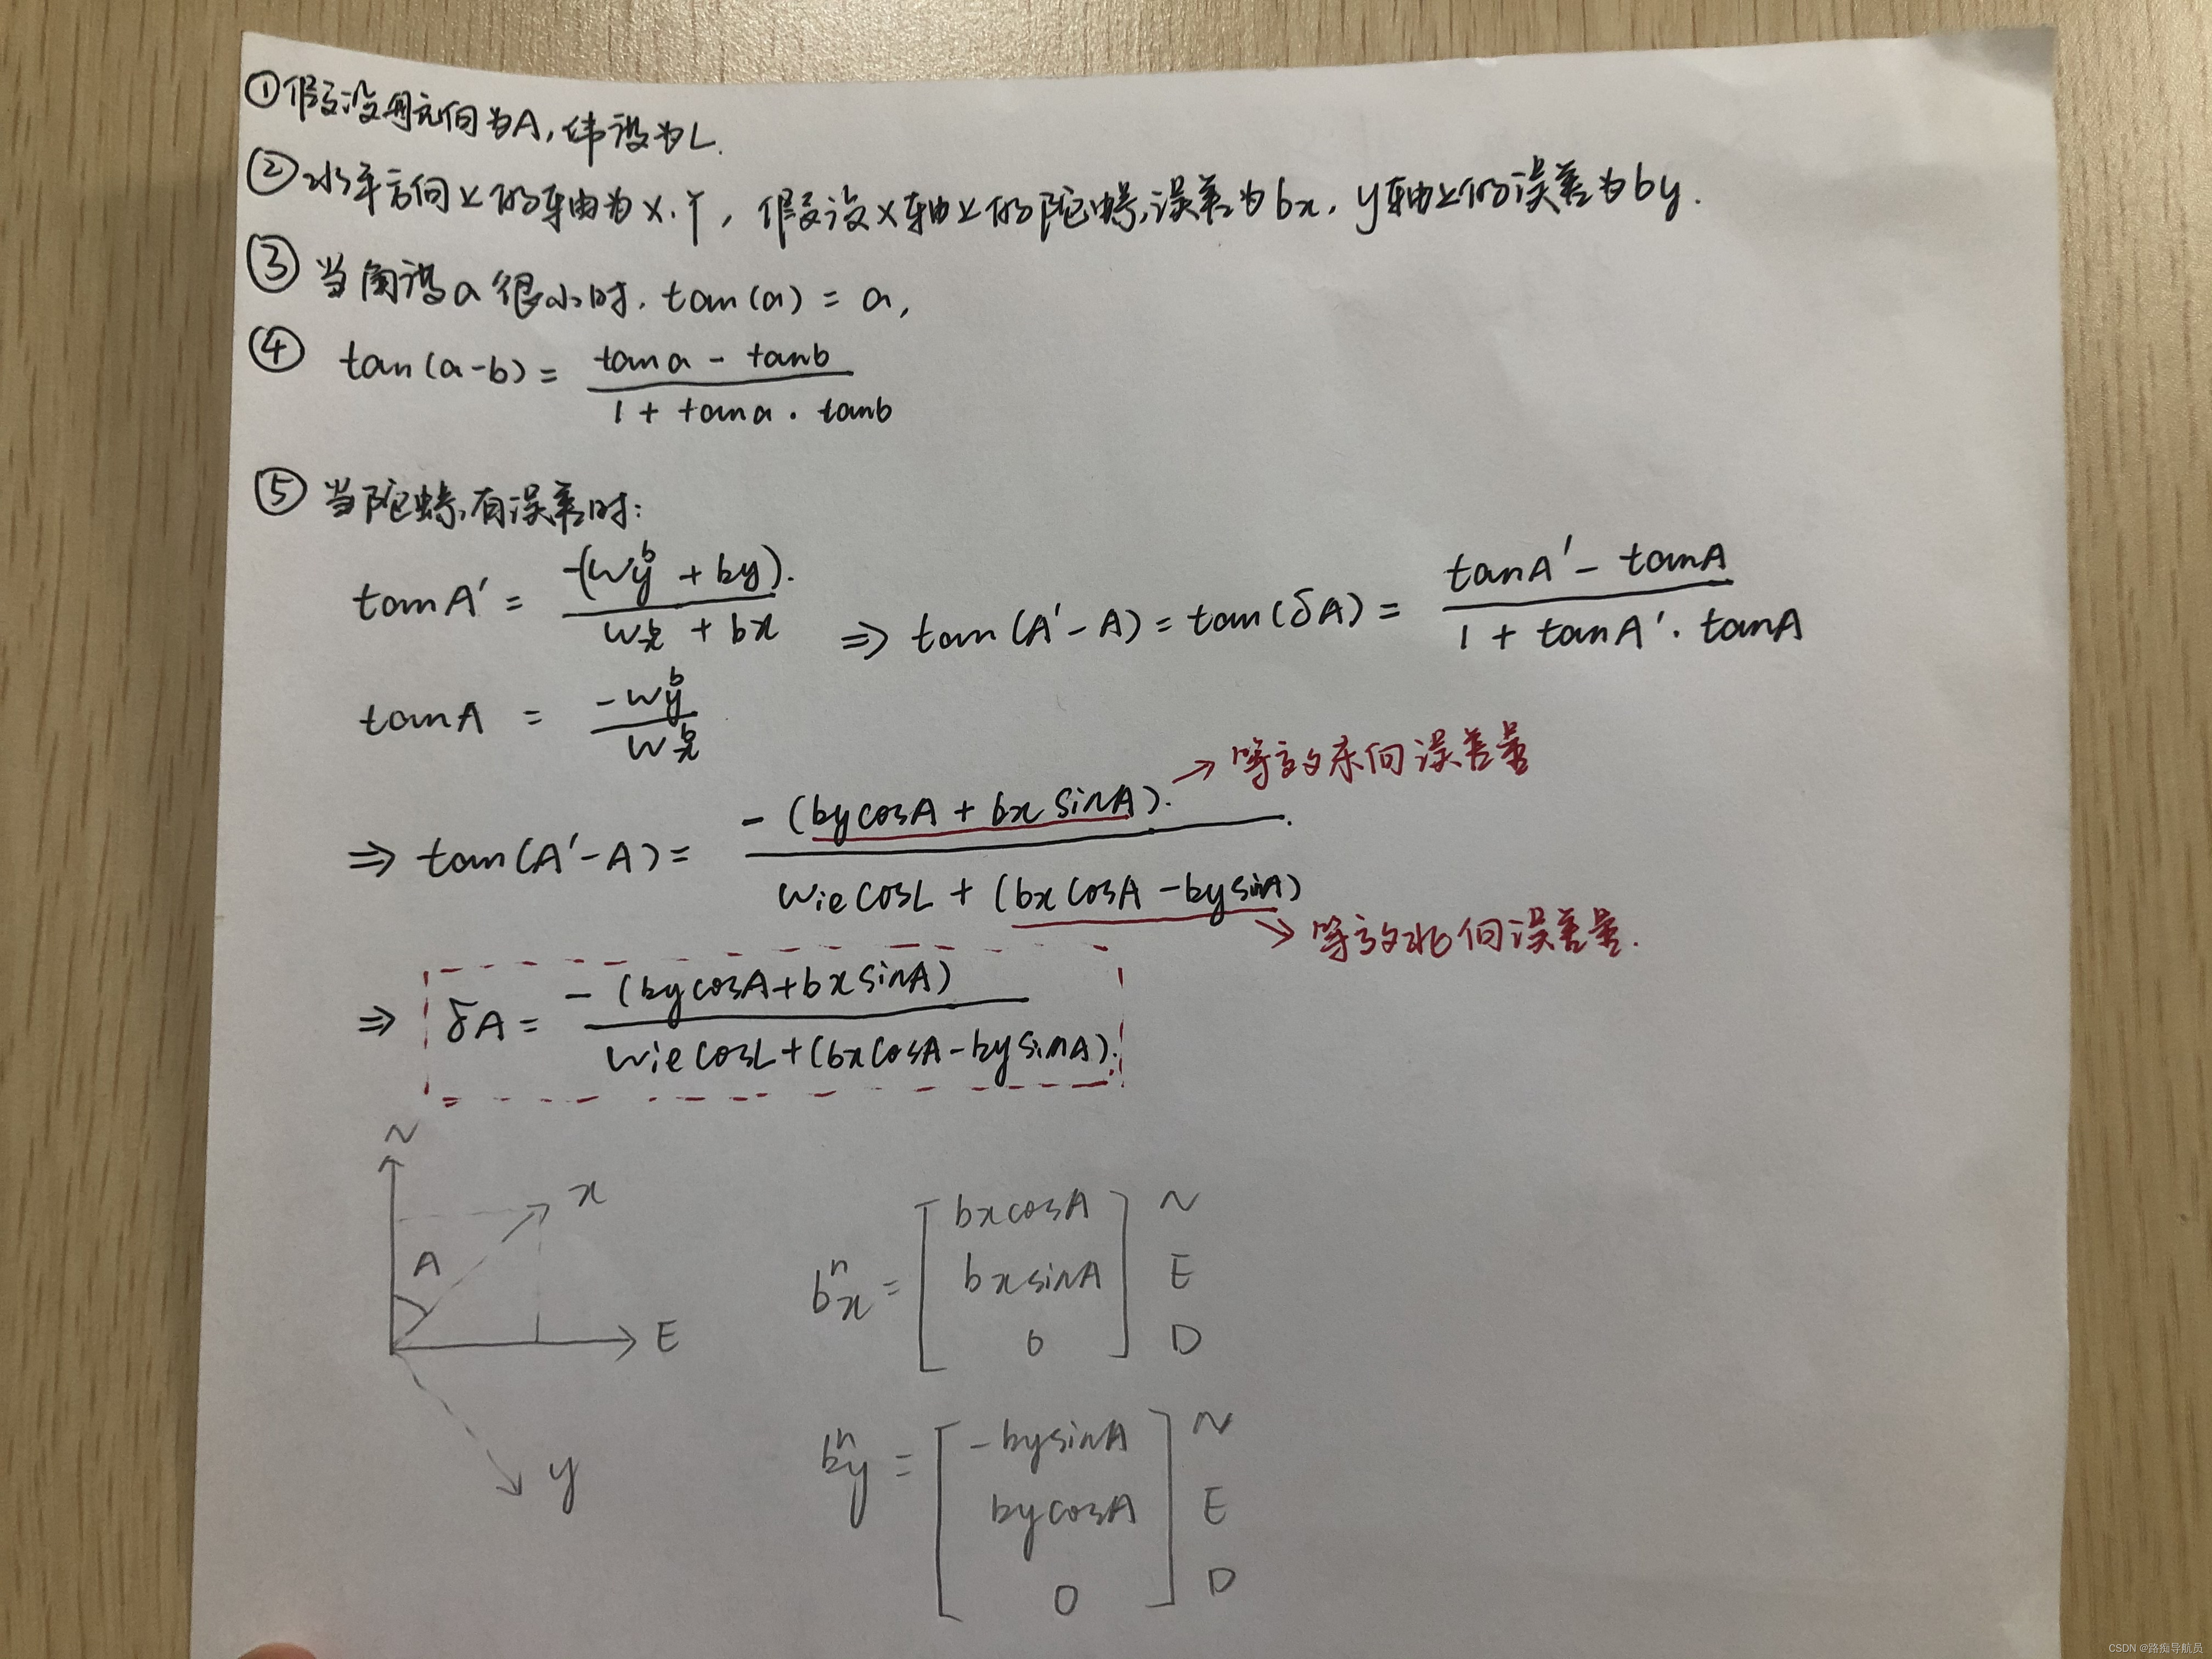 ①假设航向为A,纬度为L.
②水平方向上的轴为X.Y,假设X轴上的陀螺误差为bx,y轴上的误差为by.
③当角度a很小时.tan(a)=a,
④ tan(a-b)= (tana - tanb)/(1 + tana·tanb)
⑤当陀螺有误差时:
tanA' = -(w_y^b + by)/(w_x^b + bx) ⇒ tan(A'-A)=tan(δA)= (tanA' - tanA)/(1 + tanA'·tanA)
tanA = -w_y^b/w_x^b
→等效东向误差量
⇒ tan(A'-A)= -(bycosA + bxsinA)/(wiecosL + (bxcosA - bysinA))
→等效北向误差量.
⇒ δA= -(bycosA+bxsinA)/(wiecosL+(bxcosA-bysinA))
N
x
A
E
y
b_x^n = [bxcosA
bxsinA
0] N
E
D
b_y^n = [-bysinA
bycosA
0] N
E
D
CSDN @路痴导航员